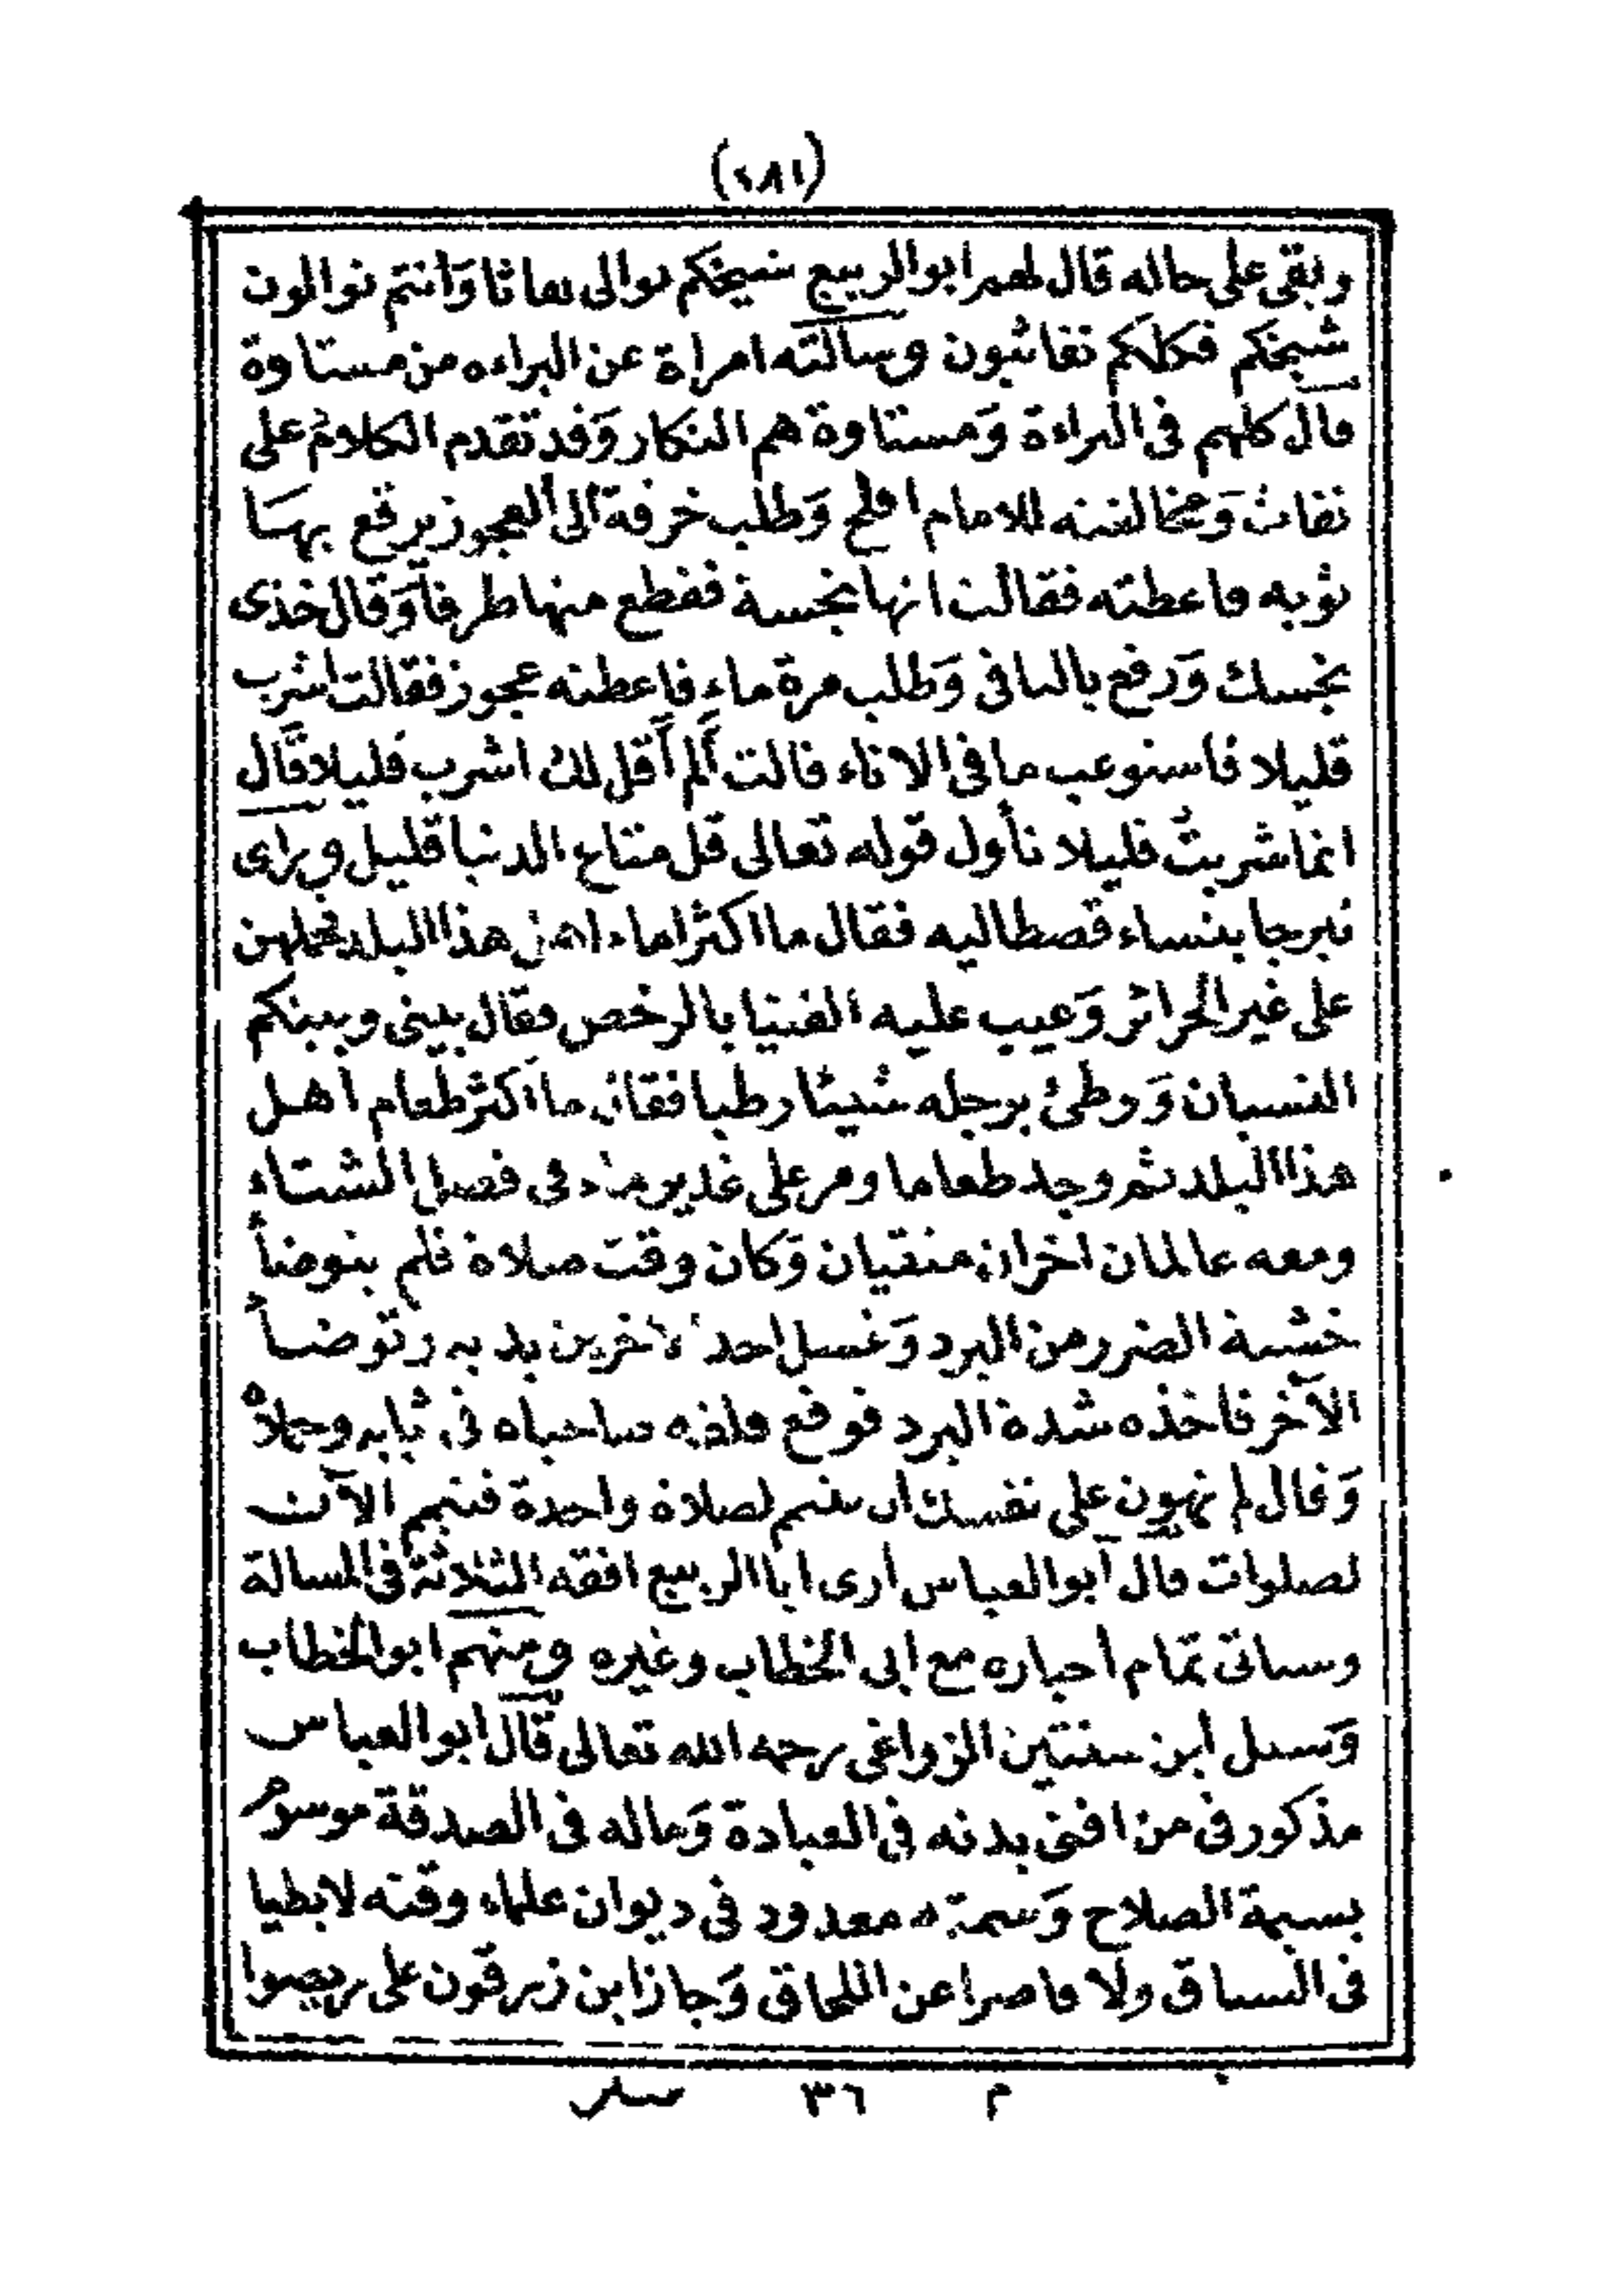 (٢٨١)
وبقى على حاله قال لهم ابو الربيع شيخكم يوالى نفاثا وَأنتم توالون
شيخكم فكلكم نفاثيون وسالَته امراة عن البراءه من مستاوة
قال كلهم فى البراءة وَمستاوة هم النكار وَقد تقدم الكلام على
نفاث وَمخالفته للامام افلح وَطلب خرقة الى العجوز يرقع بهـَا
ثوبه فاعطته فقالت انها نجسة فقطع منها طرفا وَقال خذى
نجسك وَرقع بالباقى وَطلب مرة ماء فاعطته عجوز فقالت اشرب
قليلا فاستوعب ما فى الاناء قالت ألم أَقل لك اشرب قليلا قال
انما شربتُ قليلا تأول قوله تعالى قل متاع الدنيا قليل وراى
تبرجا بنساء قصطاليه فقال ما اكثر اماء اهل هذا البلد تحملهن
على غير الحرائر وَعيب عليه الفتيا بالرخص فقال بينى وبينكم
النسيان وَوطئ برجله شيئا رطبا فقال ما اكثر طعام اهـل
هذا البلد ثم وجد طعاما ومر على غدير ماء فى فصل الشتاء
ومعه عالمان اخران متقيان وَكان وقت صلاة فلم يتوضأ
خشية الضرر من البرد وَغسل احد الاخرين يديه وتوضـأ
الآخر فاخذه شدة البرد فوقع فلفه صاحباه فى ثيابه وحملاه
وَقال لم تهون على نفسك ان تتيم لصلاة واحدة فتيمم الآن
لصلوات قال ابو العباس أرى ابا الربيع افقه الثلاثة فى المسالة
وسياتى تمام اخباره مع ابى الخطاب وغيره ومنهم ابو الخطاب
وَسيل ابن سنتين الزواغى رحمه الله تعالى قال ابو العباس
مذكور فى من افنى بدنه فى العبادة وَماله فى الصدقة موسوم
بسمة الصلاح وَسمته معدود فى ديوان علماء وقته لا بطيا
فى السباق ولا قاصرا عن اللحاق وَجاز ابن زرقون على
م ٣٦ سير